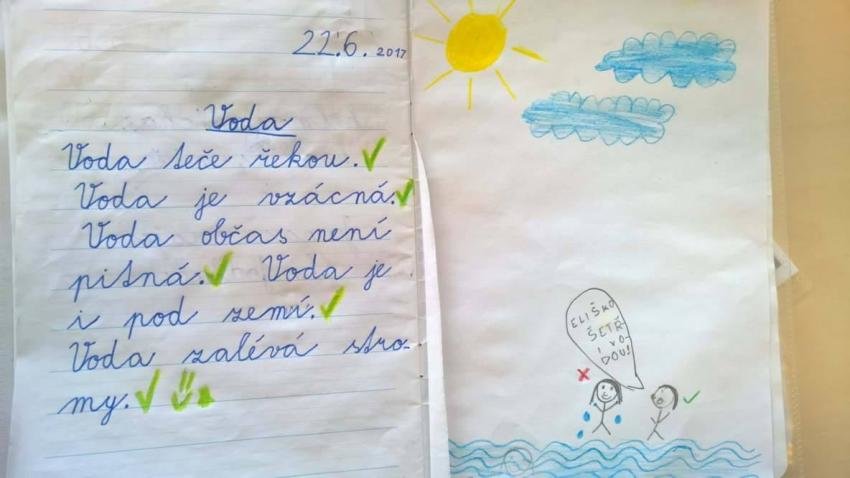 22.6. 2017
Voda
Voda teče řekou.
Voda je vzácná.
Voda občas není
pitná. Voda je
i pod zemí.
Voda zalévá stro-
my.
ELIŠKO
ŠETŘ-
I VO-
DOU!